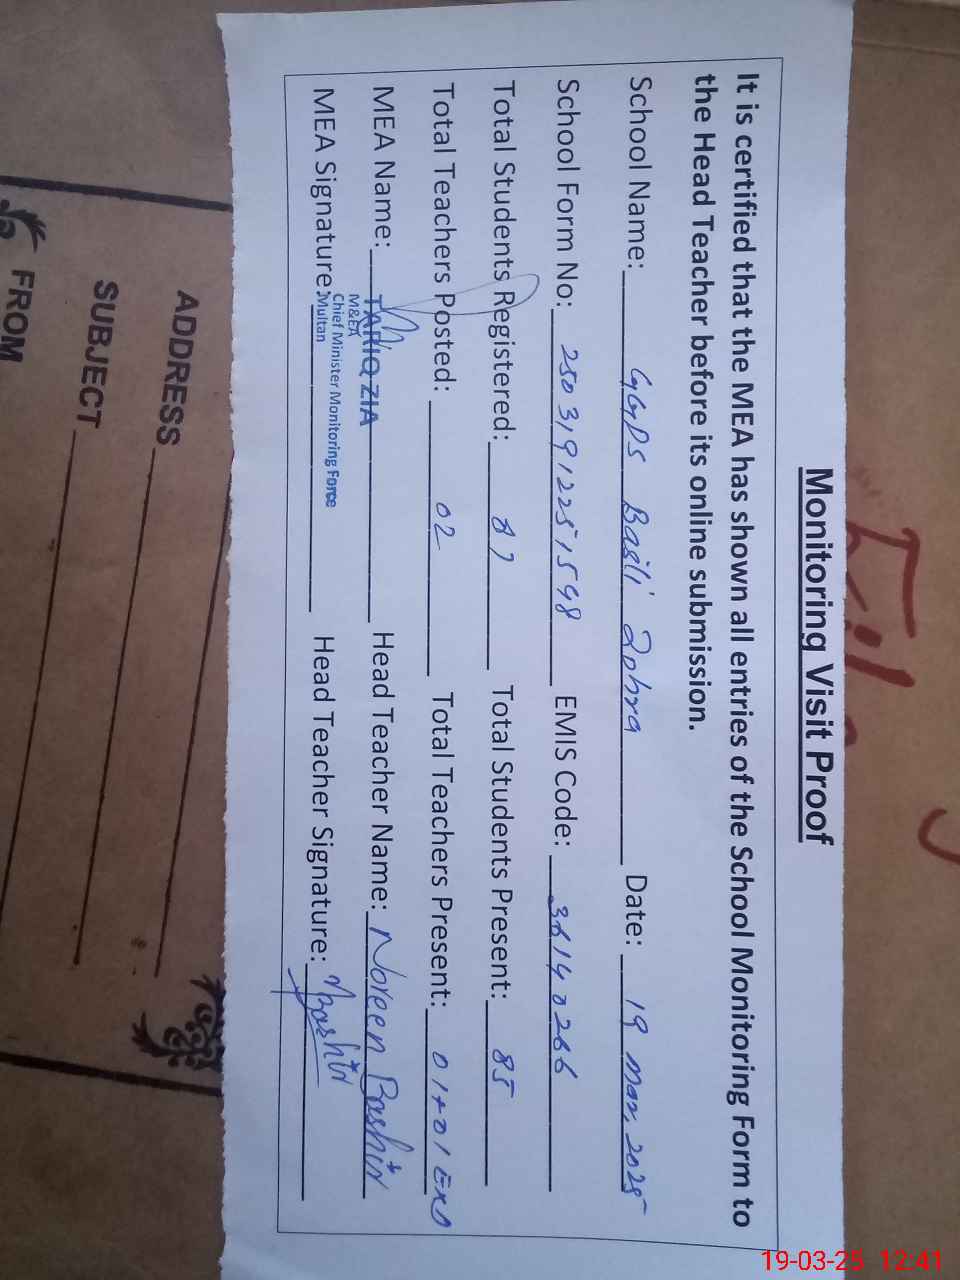 Monitoring Visit Proof
It is certified that the MEA has shown all entries of the School Monitoring Form to
the Head Teacher before its online submission.
School Name: GGPS Basti Date: 19 Mar, 2025
School Form No: 25031912251598 EMIS Code: 36140266
Total Students Registered: 87 Total Students Present: 85
Total Teachers Posted: 02 Total Teachers Present: 01+01
MEA Name: TARIQ ZIA Head Teacher Name: Noreen Bashir
M&EA
Chief Minister Monitoring Force
Multan
MEA Signature: Head Teacher Signature: NBashir
ADDRESS
SUBJECT
FROM
19-03-25 12:41